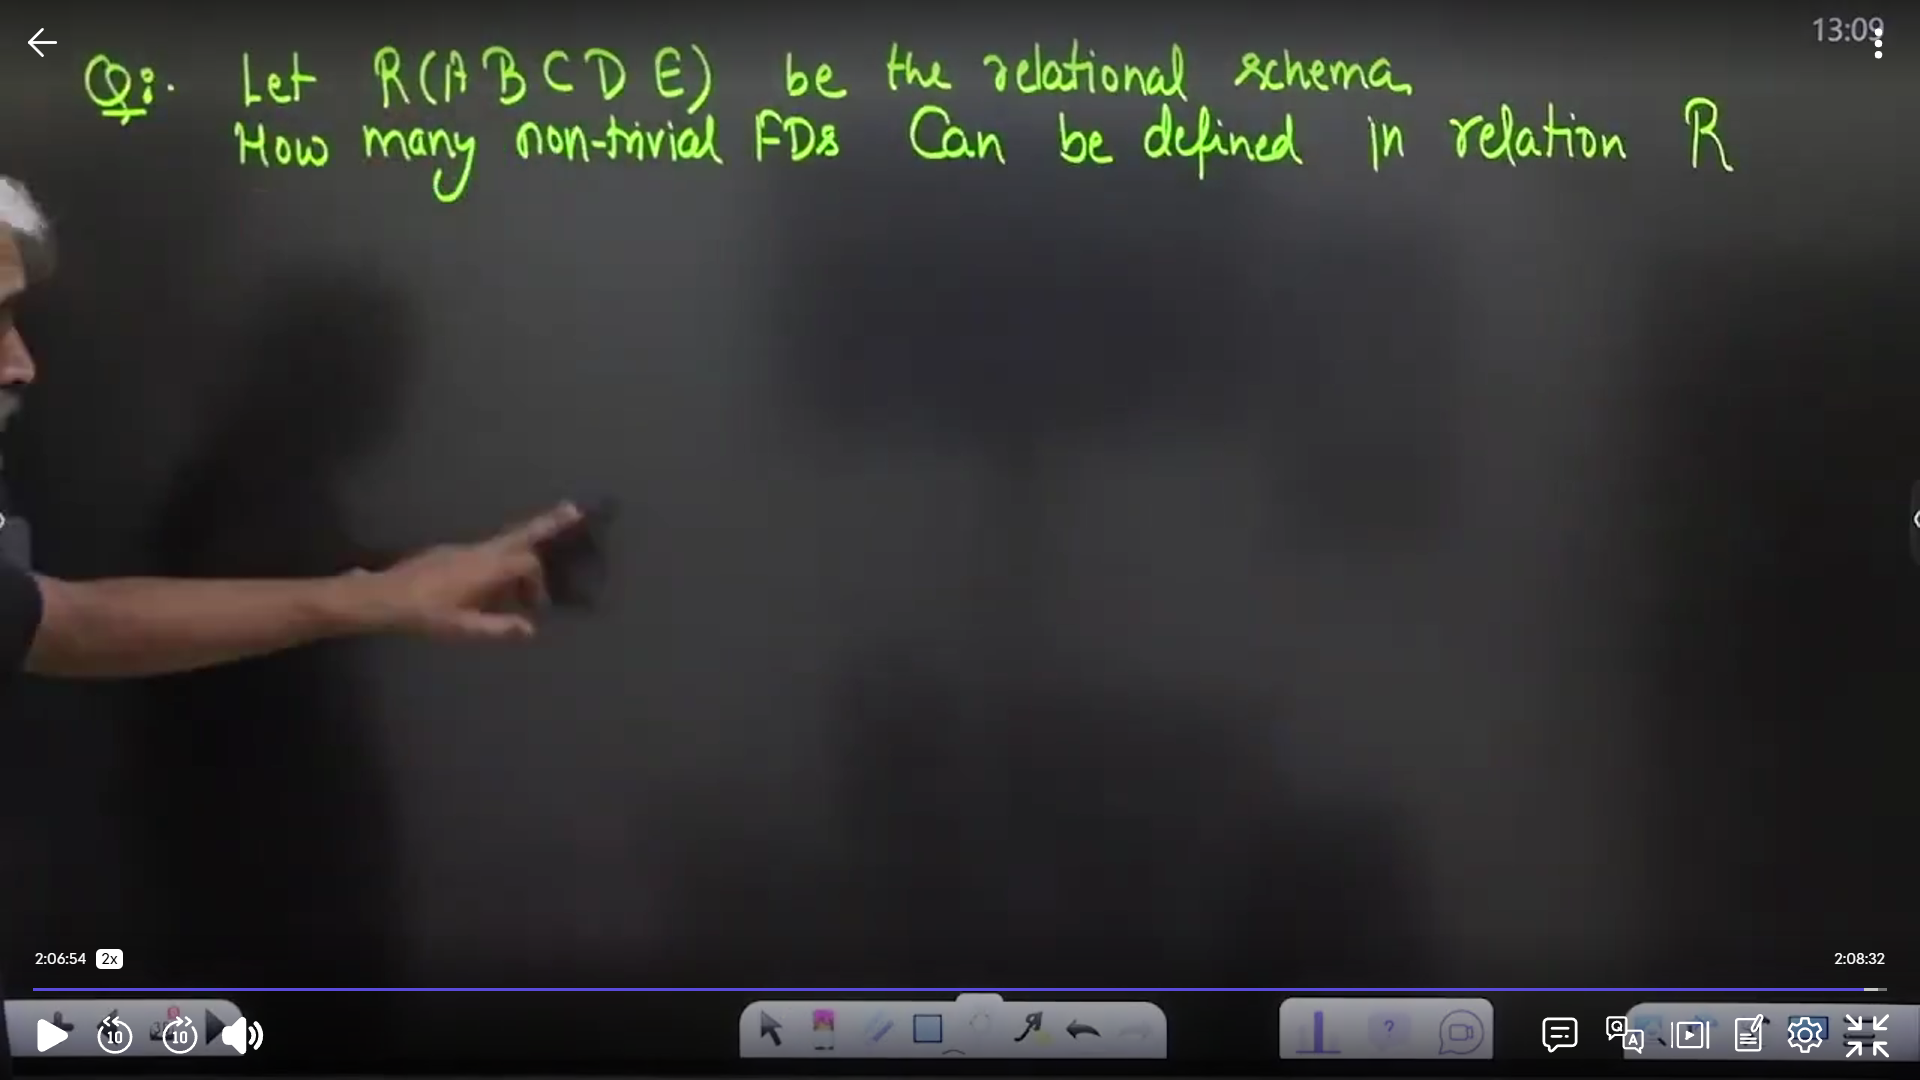 13:09
Q:. Let R(A B C D E) be the relational schema.
How many non-trivial FDs Can be defined in relation R
2:06:54 2x 2:08:32
10 10